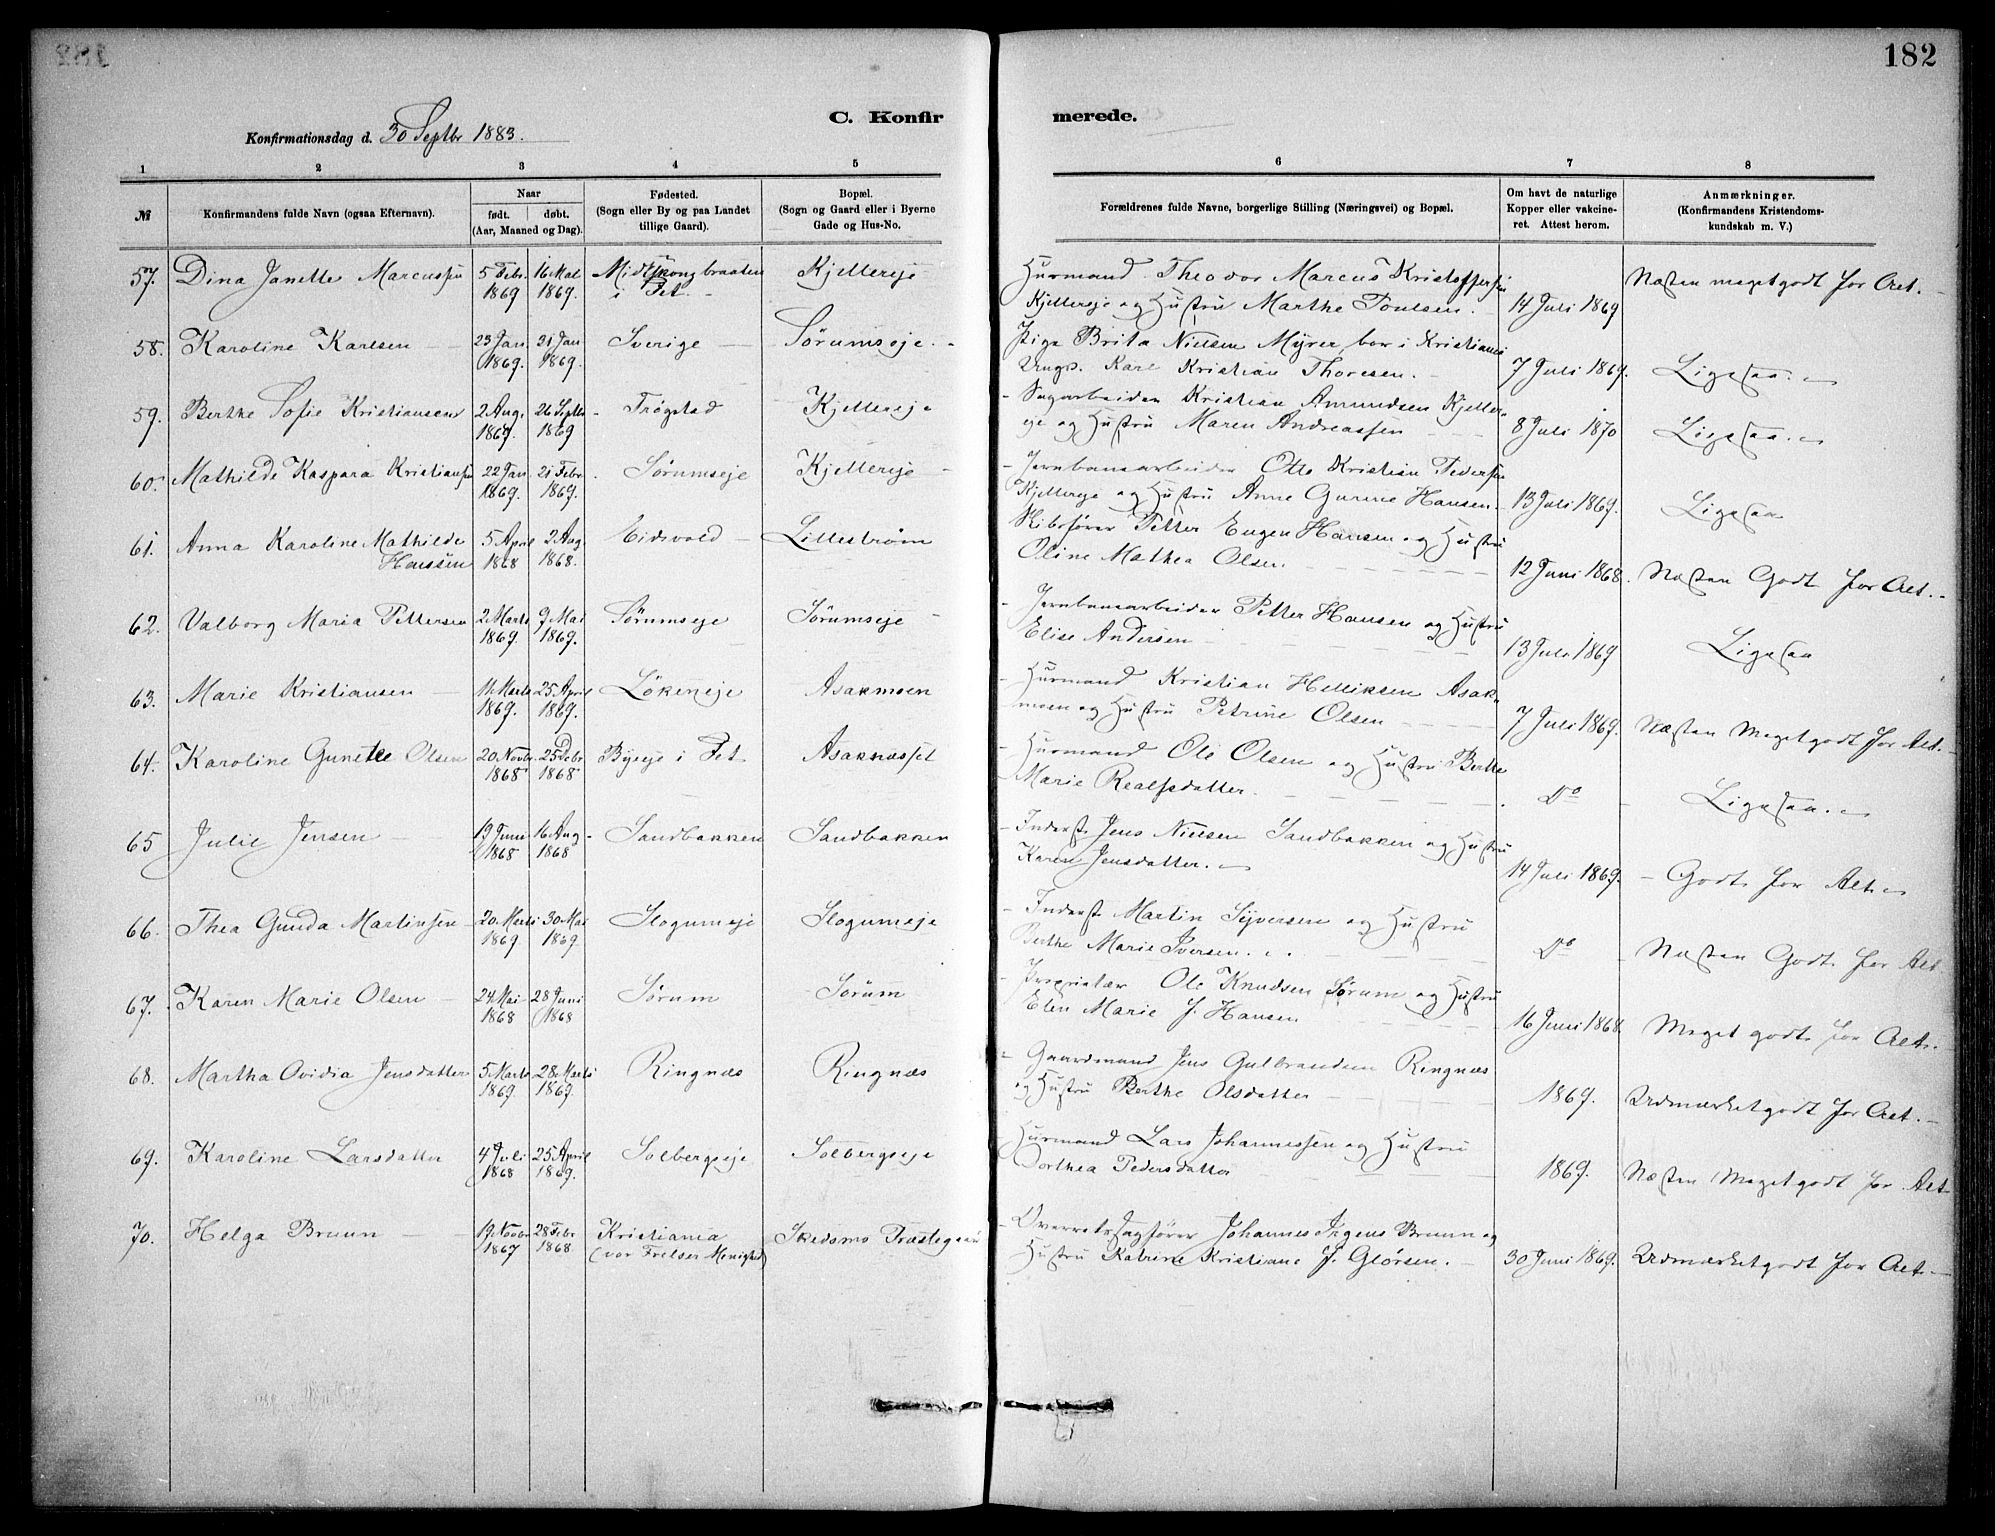 182
C. Konfirmerede.
Konfirmationsdag d. 30 Septbr 1883.
1 2 3 4 5 6 7 8
№
Konfirmandens fulde Navn (ogsaa Efternavn).
Naar
født. døbt.
(Aar, Maaned og Dag).
Fødested.
(Sogn eller By og paa Landet
tillige Gaard).
Bopæl.
(Sogn og Gaard eller i Byerne
Gade og Hus-No.
Forældrenes fulde Navne, borgerlige Stilling (Næringsvei) og Bopæl.
Om havt de naturlige
Kopper eller vakcine-
ret. Attest herom.
Anmærkninger.
(Konfirmandens Kristendoms-
kundskab m. V.)
57. Dina Janette Marcussen 5 Febr. 1869 16 Mai 1869. i Fet. Kjellereje
Husmand Theodor Marcus Kristoffersen
Kjellereje og Hustru Marthe Poulsen. 14 Juli 1869 Næsten meget godt for Alt.
58. Karoline Karlsen 23 Jan. 1869. 31 Jan 1869. Sverige Sørumseje.
Pige Brita Nielsen Myrer, bor i Kristiania
Ungk. Karl Kristian Thoresen. 7 Juli 1869. Ligesaa.
59. Berthe Sofie Kristiansen 2 Aug. 1869. 26 Septbr 1869 Trøgstad Kjellereje
Sagarbeider Kristian Amundsen Kjeller-
eje og Hustru Maren Andreassen 8 Juli 1870 Ligesaa.
60. Mathilde Kaspara Kristiansen 22 Jan. 1869. 21 Febr. 1869. Sørumseje Kjellereje
Jernbanearbeider Otto Kristian Pedersen
Kjellereje og Hustru Anne Gurine Hansen. 13 Juli 1869. Ligesaa
61. Anna Karoline Mathilde
Hanssen 5 April 1868 2 Aug 1868. Eidsvold Lillestrøm
Skibsfører Petter Eugen Hansen og Hustru
Oline Mathea Olsen. 12 Juni 1868. Næsten Godt for Alt.
62. Valborg Maria Pettersen 2 Marts 1869. 9 Mai 1869. Sørumseje Sørumseje
Jernbanearbeider Petter Hansen og Hustru
Elise Andersen 13 Juli 1869 Ligesaa
63. Marie Kristiansen 11 Marts 1869. 25 April 1869. Løkeneje Asakmoen
Husmand Kristian Helliksen Asak-
moen og Hustru Petrine Olsen 7 Juli 1869. Næsten Meget godt for Alt.
64. Karoline Gunette Olsen 20 Novbr. 1868 25 Debr. 1868 Byeje i Fet Asaknæsset
Husmand Ole Olsen og Hustru Berthe
Marie Realfsdatter. Do Ligesaa.
65 Julie Jensen 19 Juni 1868 16 Aug 1868 Sandbakken Sandbakken
Inderst Jens Nielsen Sandbakken og Hustru
Karen Jensdatter. 14 Juli 1869. Godt for Alt
66. Thea Gunda Martinsen 20 Marts 1869 30 Mai 1869. Slogumeje Slogumeje
Inderst Martin Syversen og Hustru
Berthe Marie Iversen. Do Næsten Godt for Alt
67. Karen Marie Olsen 24 Mai 1868 28 Juni 1868 Sørum Sørum
Proprietær Ole Knudsen Sørum og Hustru
Elen Marie f. Hansen 16 Juni 1868. Meget godt for Alt.
68. Martha Ovidia Jensdatter 5 Marts 1869. 28 Marts 1869. Ringnæs Ringnæs
Gaardmand Jens Gulbrandsen Ringnæs
og Hustru Berthe Olsdatter 1869. Udmærket godt for Alt.
69. Karoline Larsdatter 4 Juli 1868 25 April 1869. Solbergseje Solbergseje
Husmand Lars Johannessen og Hustru
Dorthea Pedersdatter 1869. Næsten Meget godt for Alt
70. Helga Bruun 19 Novbr 1867 28 Febr 1868. Kristiania
(vor Frelser Menighed) Skedsmo Præstegaard
Overretssagfører Johannes Irgens Bruun og
Hustru Katrine Kristiane f. Glørsen. 30 Juni 1869. Udmærket godt for Alt.